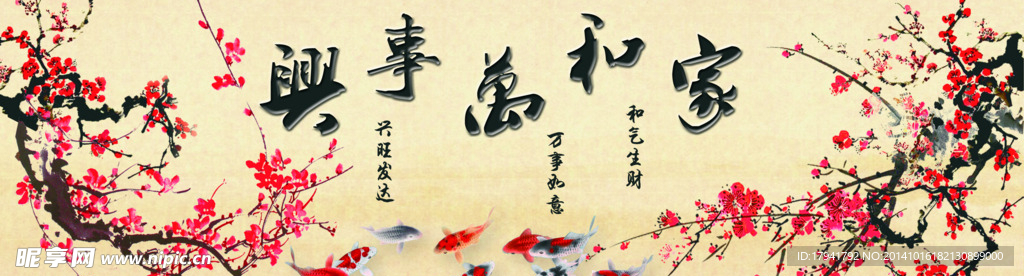 家和萬事興
和气生财
万事如意
兴旺发达
昵享网 www.nipic.cn
ID:17941792 NO:20141016182130899000